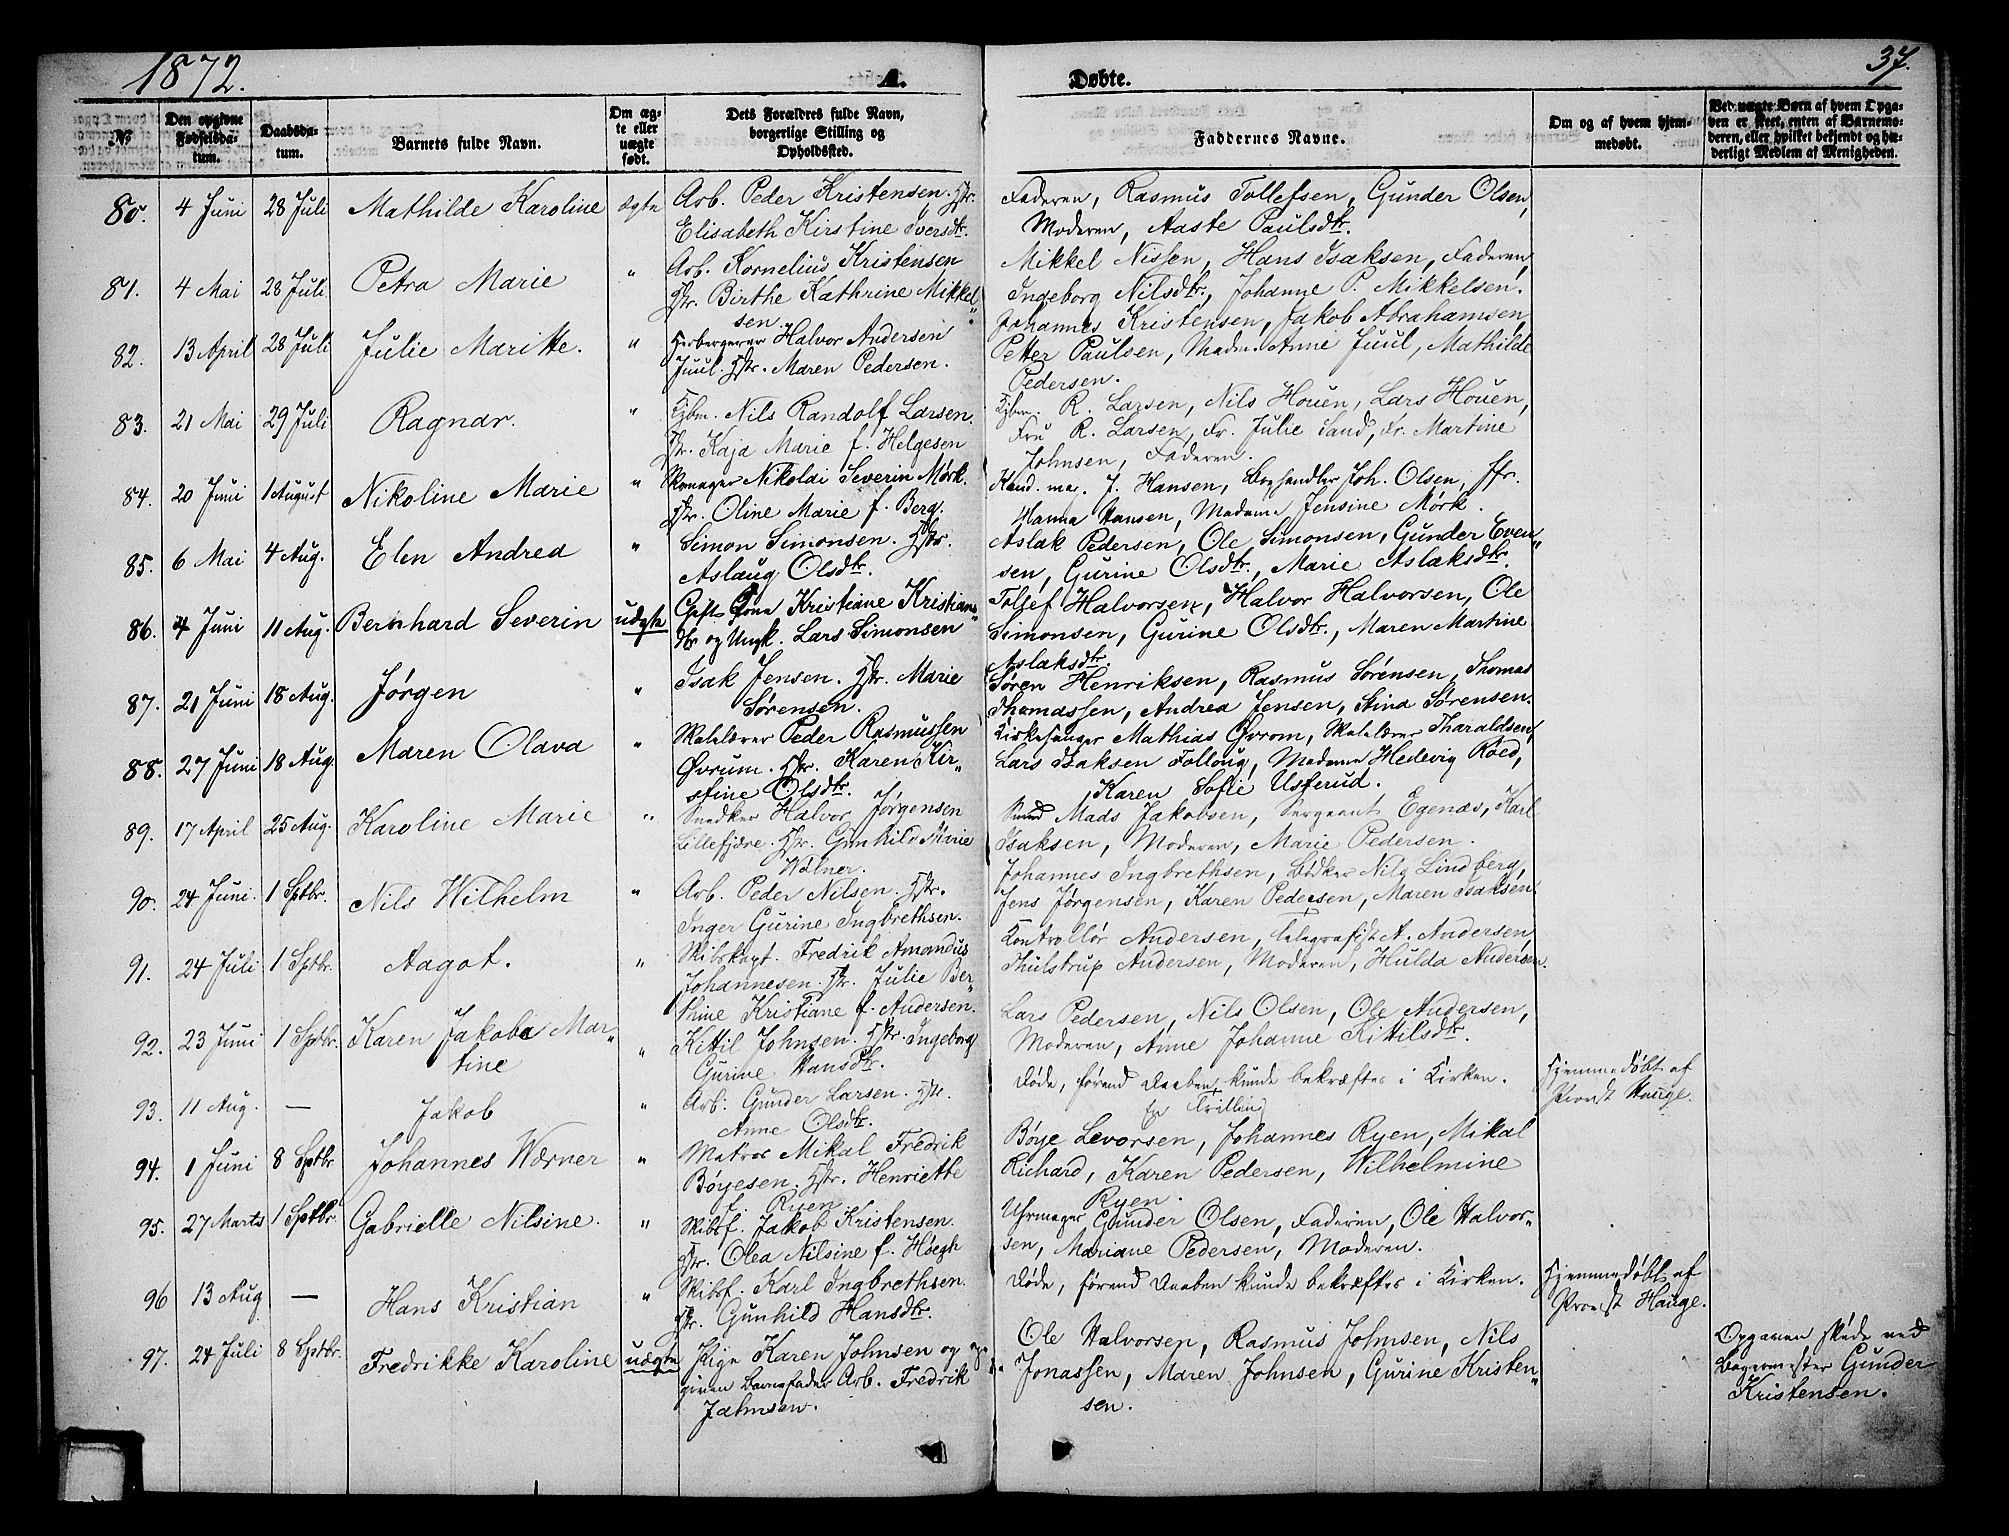 1872.
A.
Døbte.
37.
№
Den opgivne Fødselsdatum.
Daabsdatum.
Barnets fulde Navn.
Om ægte eller uægte født.
Dets Forældres fulde Navn, borgerlige Stilling og Opholdssted.
Faddernes Navne.
Om og af hvem hjemmedøbt.
Ved uægte Børn af hvem Opgaven er skeet, enten af Barnemoderen, eller hvilket bekjendt og hæderligt Medlem af Menigheden.
80. 4 Juni 28 Juli Mathilde Karoline ægte Arb. Peder Kristensen. Hstr.
Elisabeth Kirstine Iversdtr.
Faderen, Rasmus Tollefsen, Gunder Olsen,
Moderen, Aaste Paulsdtr.
81. 4 Mai 28 Juli Petra Marie " Arb. Kornelius Kristensen
Hstr. Birthe Kathrine Mikkel„
sen.
Mikkel Nissen, Hans Isaksen, Faderen,
Ingeborg Nilsdtr., Johanne P. Mikkelsen.
82. 13 April 28 Juli Julie Maritte. " Herbergerer Halvor Andersen
Juul. Hstr. Maren Pedersen.
Johannes Kristensen, Jakob Abrahamsen,
Petter Paulsen, Madm. Anne Juul, Mathilde
Pedersen.
83. 21 Mai 29 Juli Ragnar. " Kjbm. Nils Randolf Larsen.
Hstr. Kaja Marie f. Helgesen
Kjbm. R. Larsen, Nils Houen, Lars Houen,
Fru R. Larsen, Fr. Julie Sand, Fr. Martine
Johnsen, Faderen.
84. 20 Juni 1 August Nikoline Marie " Skomager Nikolai Severin Mørk.
Hstr. Oline Marie f. Berg.
Kand. mag. J. Hansen, Boghandler Joh. Olsen, Ffr.
Hanna Hansen, Madame Jensine Mørk.
85. 6 Mai 4 Aug. Elen Andrea " Simon Simonsen. Hstr.
Aslaug Olsdtr.
Aslak Pedersen, Ole Simonsen, Gunder Even„
sen, Gurine Olsdtr., Marie Aslaksdtr.
86. 4 Juni 11 Aug. Bernhard Severin uægte Gift Kone Kristiane Kristians„
dtr og Ungk. Lars Simonsen
Tollef Halvorsen, Halvor Halvorsen, Ole
Simonsen, Gurine Olsdtr., Maren Martine
Aslaksdtr.
87. 21 Juni 18 Aug. Jørgen " Isak Jensen. Hstr. Marie
Sørensen.
Søren Henriksen, Rasmus Sørensen, Thomas
Thomassen, Andrea Jensen, Stina Sørensen.
88. 27 Juni 18 Aug. Maren Olava " Skolelærer Peder Rasmussen
Øvrum. Hstr. Karen Kir„
stine Olsdtr.
Kirkesanger Mathias Øvrom, Skolelærer Tharaldsen,
Lars Isaksen Follaug, Madame Hedevig Röed,
Karen Sofie Usterud.
89. 17 April 25 Aug. Karoline Marie " Snedker Halvor Jørgensen
Lillefjære. Hstr. Gunhild Marie
Wölner.
Smed Mads Jakobsen, Sergeant Egenæs, Karl
Isaksen, Moderen, Marie Pedersen.
90. 24 Juni. 1 Sptbr. Nils Wilhelm " Arb. Peder Nilsen. Hstr.
Inger Gurine Ingbrethsen.
Johannes Ingbrethsen, Bødker Nils Lindberg,
Jens Jørgensen, Karen Pedersen, Maren Isaksen.
91. 24 Juli 1 Sptbr. Aagot. " Skibskapt. Fredrik Amandus
Johannesen. Hstr. Julie Ber„
thine Kristiane f. Andersen.
Kontrollør Andersen, Telegrafist A. Andersen,
Thulstrup Andersen, Moderen, Hulda Andersen.
92. 23 Juni 1 Sptbr. Karen Jakoba Mar„
tine " Kittil Johnsen. Hstr. Ingeborg
Gurine Hansdtr.
Lars Pedersen, Nils Olsen, Ole Andersen,
Moderen, Anne Johanne Kittilsdtr.
93. 11 Aug. — Jakob " Arb. Gunder Larsen. Hstr.
Anne Olsdtr.
Døde, førend Daaben kunde bekræftes i Kirken.
En Trilling
Hjemmedøbt af
Provst Hauge.
94. 1 Juni 8 Sptbr Johannes Werner " Matros Mikal Fredrik
Böyesen. Hstr. Henriette
f. Ryen.
Böye Levorsen, Johannes Ryen, Mikal
Richard, Karen Pedersen, Wilhelmine
Ryen.
95. 27 Marts 1 Sptbr. Gabrielle Nilsine. " Skibsf. Jakob Kristensen.
Hstr. Olea Nilsine f. Høegh
Uhrmager Gunder Olsen, Faderen, Ole Halvor„
sen, Mariane Pedersen, Moderen.
96 13 Aug — Hans Kristian " Skibsf. Karl Ingbrethsen.
Hstr. Gunhild Hansdtr.
Døde, førend Daaben kunde bekræftes i Kirken.
Hjemmedøbt af
Provst Hauge.
97. 24 Juli 8 Sptbr. Fredrikke Karoline uægte Pige Karen Johnsen og op„
given Barnefader Arb. Fredrik
Jahnsen.
Ole Halvorsen, Rasmus Johnsen, Nils
Jonassen, Maren Johnsen, Gurine Kristen„
sen.
Opgaven skede ved
Bagermester Gunder
Kristensen.